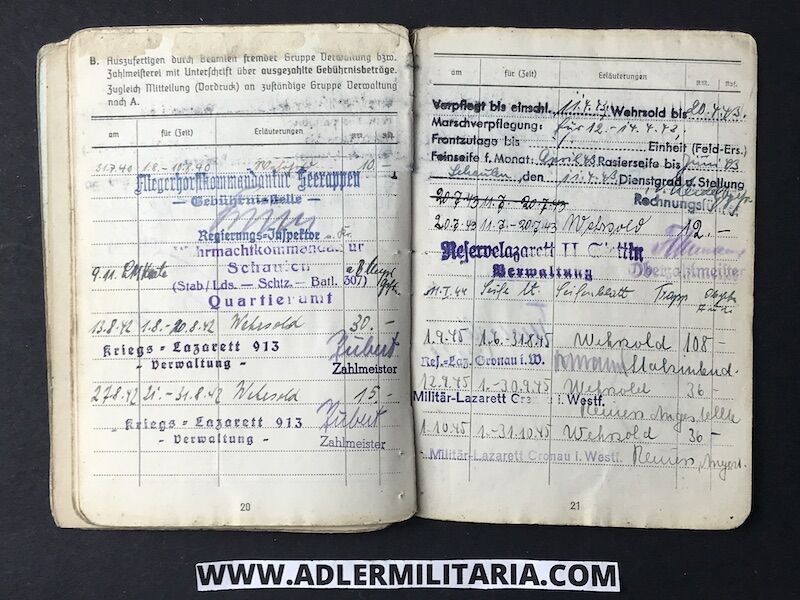 B. Auszufertigen durch Beamten fremder Gruppe Verwaltung bzw.
Zahlmeisterei mit Unterschrift über ausgezahlte Gebührnisbeträge.
Zugleich Mitteilung (Vordruck) an zuständige Gruppe Verwaltung
nach A.
am für (Zeit) Erläuterungen RM. Rpf.
31.7.40 1.8.-10.8.40 10 -
Fliegerhorstkommandantur Seerappen
- Gebührnisstelle -
Regierungs-Inspektor
Wehrmachtkommandantur
9.11. Schaulen
(Stab/Lds. - Schtz. - Batl. 307)
Quartieramt
13.8.42 1.8.-20.8.42 Wehrsold 30.-
Kriegs-Lazarett 913
- Verwaltung - Zubert
Zahlmeister
27.8.42 21.-31.8.42 Wehrsold 15.-
Kriegs-Lazarett 913 Zubert
- Verwaltung - Zahlmeister
20
am für (Zeit) Erläuterungen RM. Rpf.
Verpflegt bis einschl. 11.4.43 Wehrsold bis 20.4.43.
Marschverpflegung: für 12.-14.4.43.
Frontzulage bis Einheit (Feld-Ers.)
Feinseife f. Monat: April 43 Rasierseife bis Juni 43
Schaulen, den 11.4.43 Dienstgrad u. Stellung
20.7.43 11.7.-20.7.43 Rechnungsf.
20.7.43 11.7.-20.7.43 Wehrsold 12.-
Reservelazarett II Stettin
Verwaltung Oberzahlmeister
Seife
1.9.45 1.6.-31.8.45 Wehrsold 108 -
Res.-Laz. Gronau i.W. Stabsintend.
12.9.45 1.-30.9.45 Wehrsold 36 -
Militär-Lazarett Gronau i. Westf.
Angestellte
1.10.45 1.-31.10.45 Wehrsold 36 -
Militär-Lazarett Gronau i. Westf. Angest.
21
WWW.ADLERMILITARIA.COM